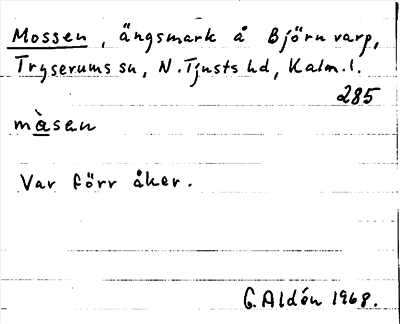 Mossen, ängsmark å Björnvarp,
Tryserums sn, N. Tjusts hd, Kalm. l.
285
màsan
Var förr åker.
G. Aldén 1968.